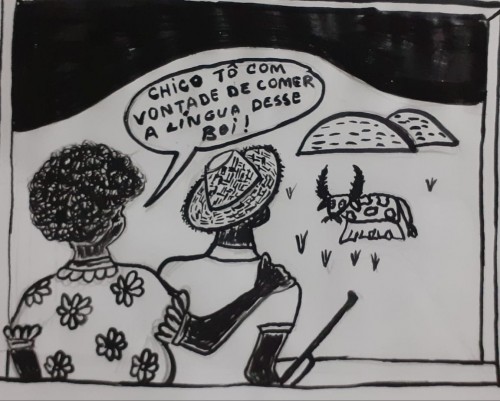 CHICO TÔ COM
VONTADE DE COMER
A LÍNGUA DESSE
BOI!